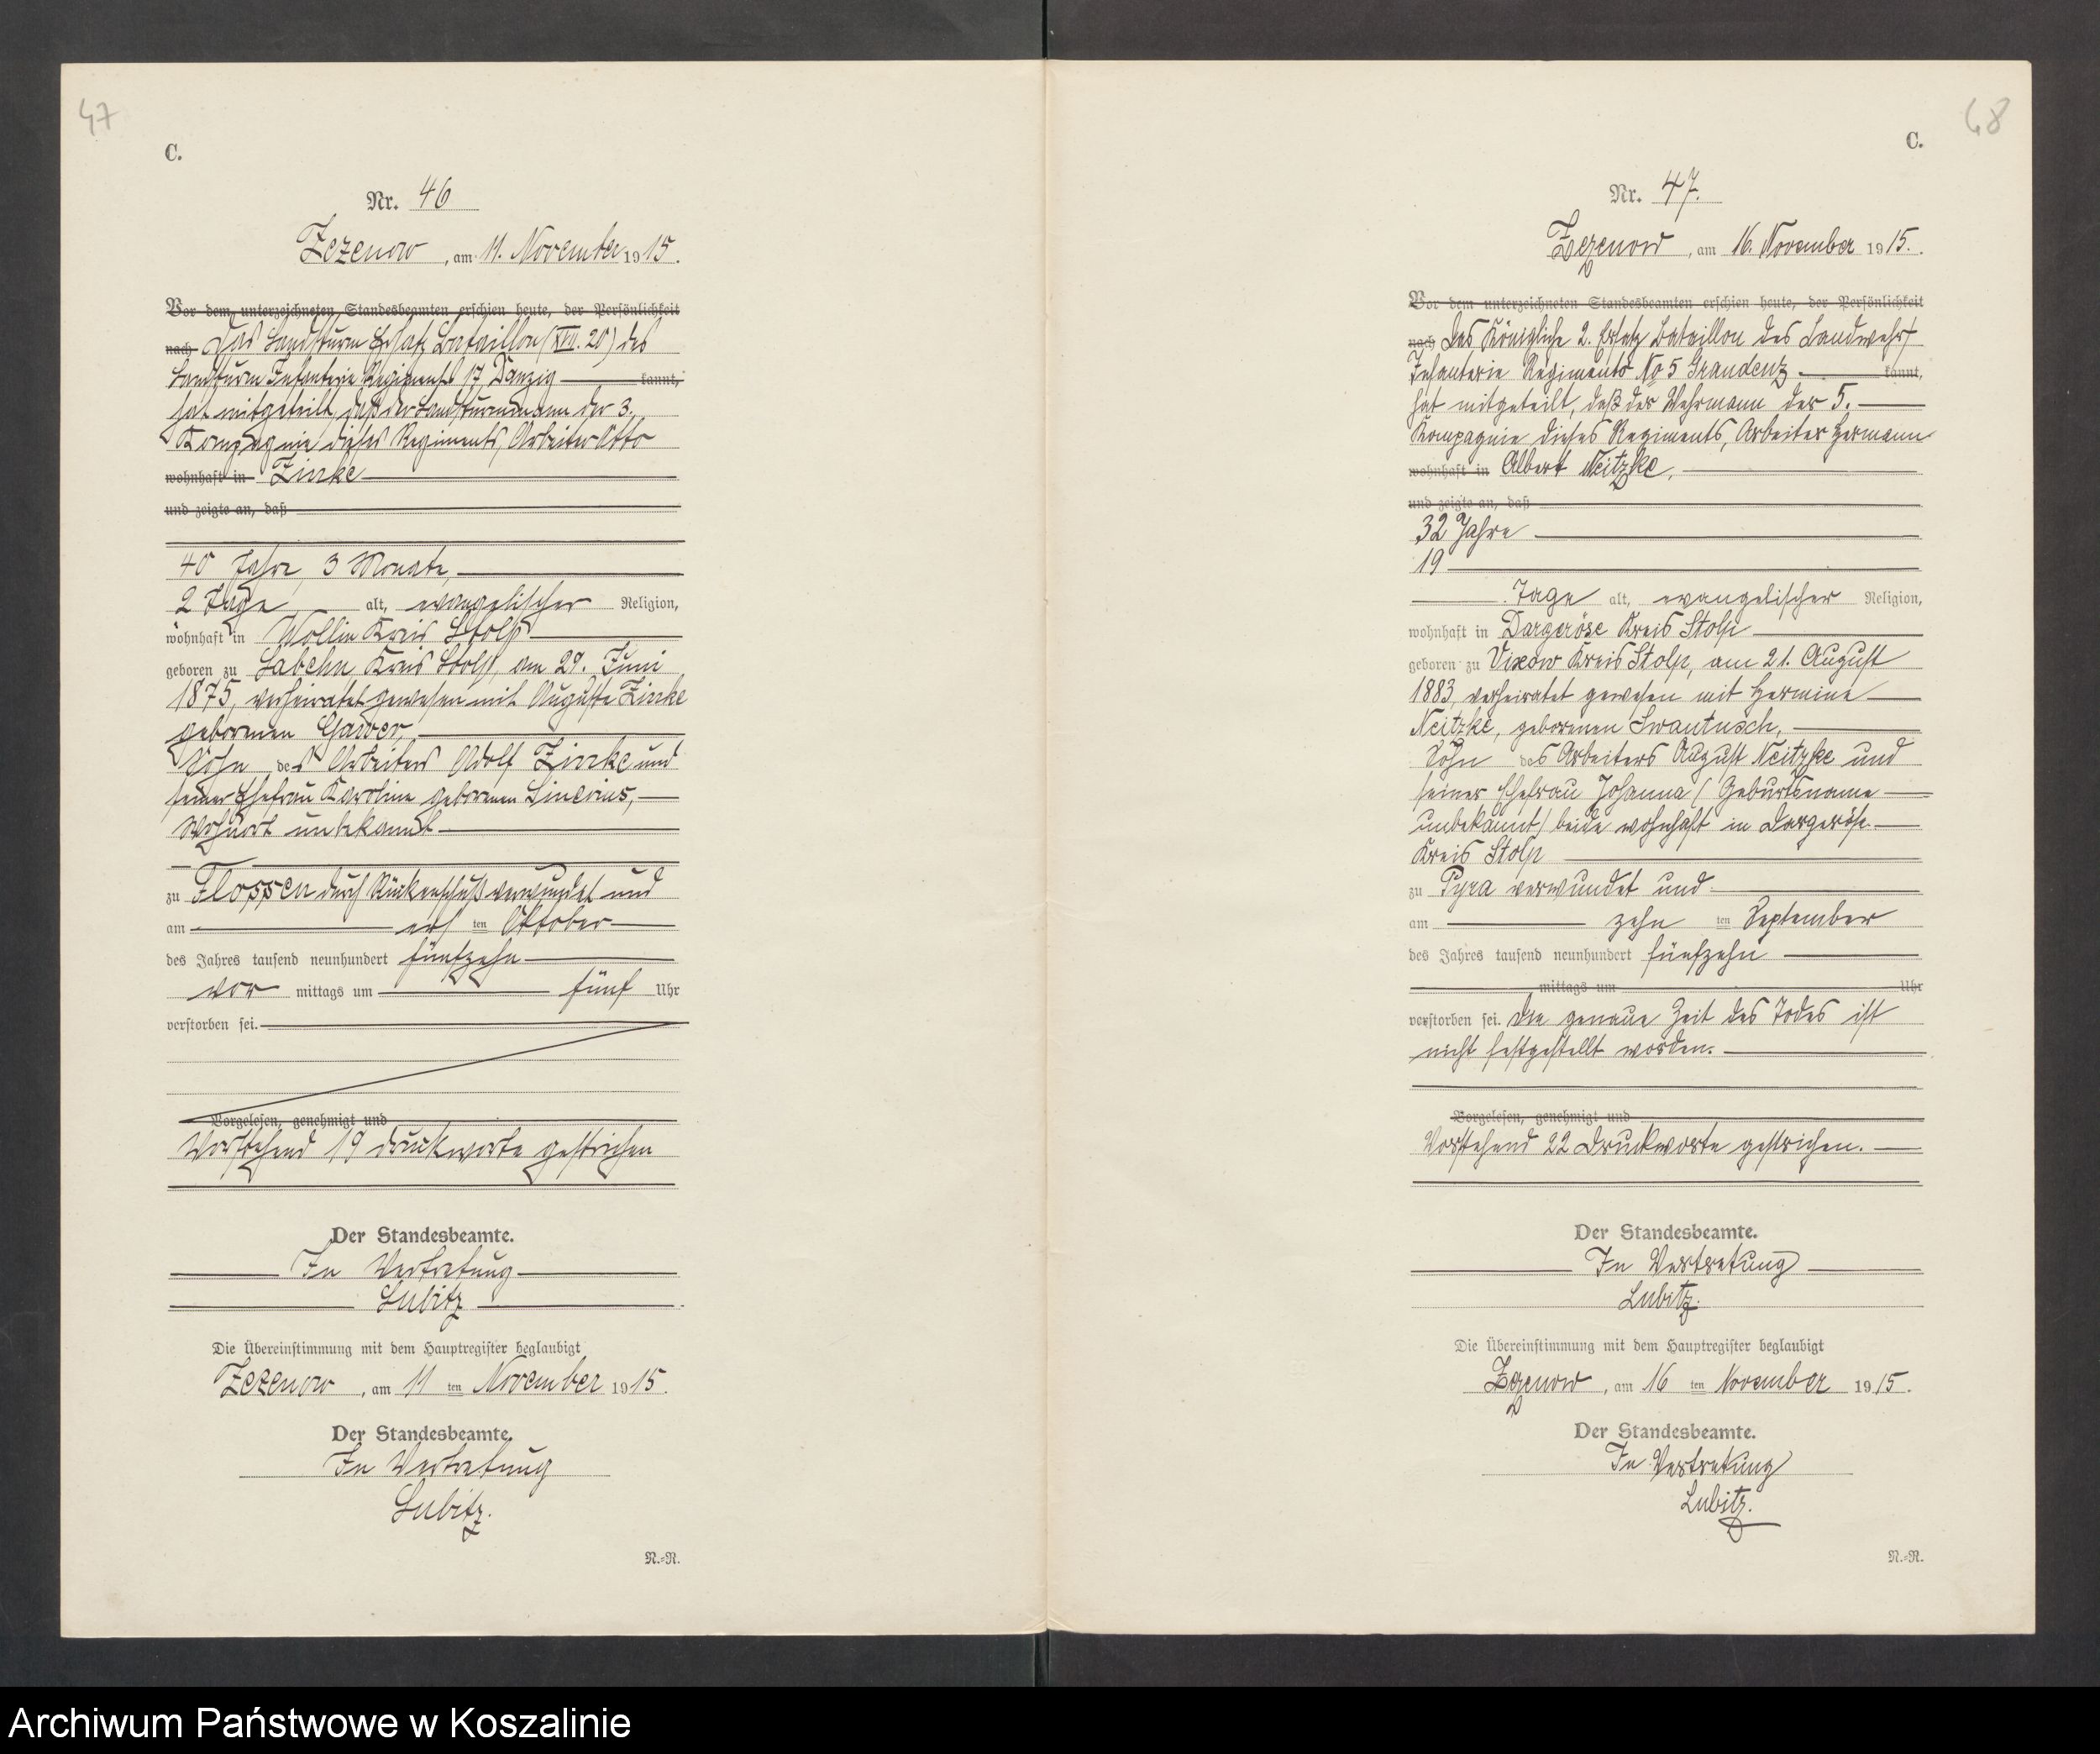 47
C.
Nr. 46
Zezenow, am 11. November 1915.
Vor dem unterzeichneten Standesbeamten erschien heute, der Persönlichkeit
nach Das Landsturm Ersatz Bataillon (XVII. 20) des
Landsturm Infanterie Regiments 17 Danzig kannt,
hat mitgeteilt, daß der Landsturmmann der 3.
Kompagnie dieses Regiments, Arbeiter Otto
wohnhaft in Zirrke
und zeigte an, daß
40 Jahre, 3 Monate,
2 Tage alt, evangelischer Religion,
wohnhaft in Wollin Kreis Stolp
geboren zu Labehn Kreis Stolp, am 29. Juni
1875, verheiratet gewesen mit Auguste Zirrke
geborenen Garver,
Sohn des Arbeiters Adolf Zirrke und
seiner Ehefrau Karoline geborenen
Wohnort unbekannt
zu Flossen durch Rückenschuß verwundet und
am ten Oktober
des Jahres tausend neunhundert fünfzehn
vor mittags um fünf Uhr
verstorben sei.
Vorgelesen, genehmigt und
Vorstehend 19 Druckworte gestrichen
Der Standesbeamte.
In Vertretung
Lubitz
Die Übereinstimmung mit dem Hauptregister beglaubigt
Zezenow, am 11 ten November 1915.
Der Standesbeamte.
In Vertretung
Lubitz.
N.=N.
68
C.
Nr. 47.
Zezenow, am 16. November 1915.
Vor dem unterzeichneten Standesbeamten erschien heute, der Persönlichkeit
nach Das Königliche 2. Ersatz Bataillon des Landwehr
Infanterie Regiments No 5 Graudenz kannt,
hat mitgeteilt, daß der Wehrmann der 5.
Kompagnie dieses Regiments, Arbeiter Hermann
wohnhaft in Albert Neitzke,
und zeigte an, daß
32 Jahre
19
Tage alt, evangelischer Religion,
wohnhaft in Dargeröse Kreis Stolp
geboren zu Vixow Kreis Stolp, am 21. August
1883, verheiratet gewesen mit Hermine
Neitzke, geborenen Swantusch,
Sohn des Arbeiters August Neitzke und
seiner Ehefrau Johanna (Geburtsname
unbekannt) beide wohnhaft in Dargeröse
Kreis Stolp
zu Pyra verwundet und
am zehn ten September
des Jahres tausend neunhundert fünfzehn
mittags um Uhr
verstorben sei. Die genaue Zeit des Todes ist
nicht festgestellt worden.
Vorgelesen, genehmigt und
Vorstehend 22 Druckworte gestrichen.
Der Standesbeamte.
In Vertretung
Lubitz.
Die Übereinstimmung mit dem Hauptregister beglaubigt
Zezenow, am 16 ten November 1915.
Der Standesbeamte.
In Vertretung
Lubitz.
N.=N.
Archiwum Państwowe w Koszalinie